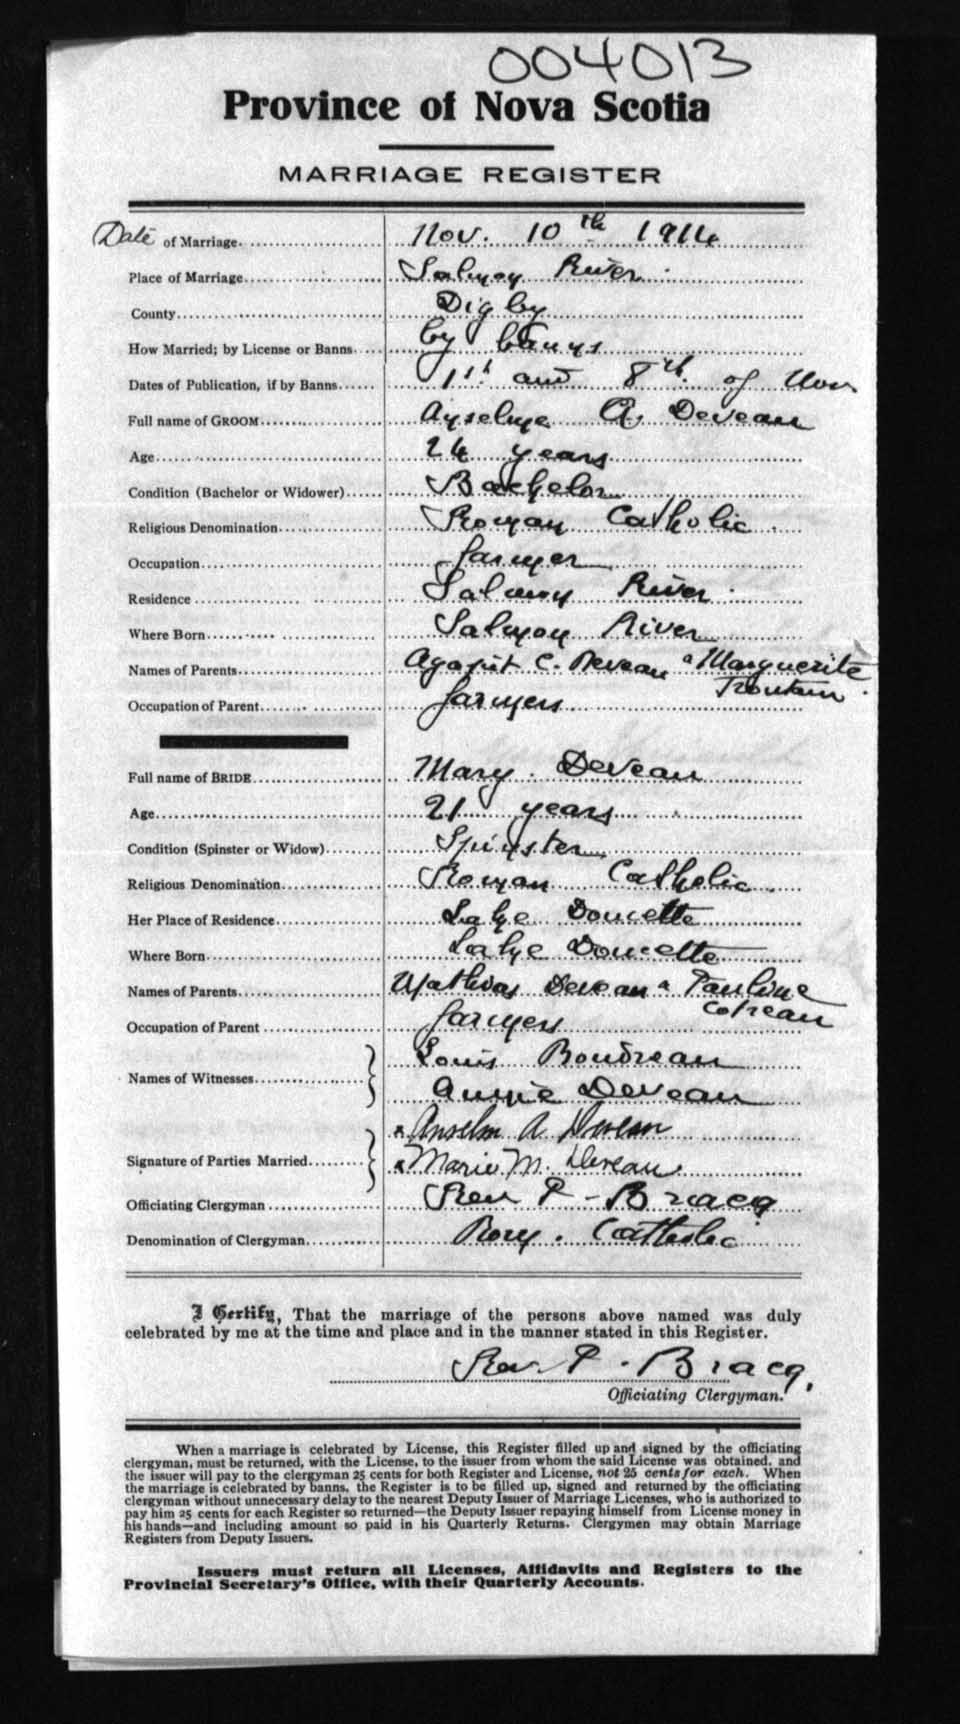 004013
Province of Nova Scotia
MARRIAGE REGISTER
Date of Marriage Nov. 10th 1914
Place of Marriage Salmon River
County Digby
How Married; by License or Banns by banns
Dates of Publication, if by Banns 1st and 8th of Nov
Full name of GROOM Anselme A. Deveau
Age 24 years
Condition (Bachelor or Widower) Bachelor
Religious Denomination Roman Catholic
Occupation farmer
Residence Salmon River
Where Born Salmon River
Names of Parents Agapit C. Deveau & Marguerite
Occupation of Parent farmers
Full name of BRIDE Mary Deveau
Age 21 years
Condition (Spinster or Widow) Spinster
Religious Denomination Roman Catholic
Her Place of Residence Lake Doucette
Where Born Lake Doucette
Names of Parents Mathias Deveau & Pauline
Cotreau
Occupation of Parent farmers
Names of Witnesses Louis Boudreau
Annie Deveau
Signature of Parties Married x Anselm A Deveau
x Marie M. Deveau
Officiating Clergyman Rev P. Bracq
Denomination of Clergyman Rom. Catholic
I Certify, That the marriage of the persons above named was duly
celebrated by me at the time and place and in the manner stated in this Register.
Rev. P. Bracq,
Officiating Clergyman.
When a marriage is celebrated by License, this Register filled up and signed by the officiating
clergyman, must be returned, with the License, to the issuer from whom the said License was obtained, and
the issuer will pay to the clergyman 25 cents for both Register and License, not 25 cents for each. When
the marriage is celebrated by banns, the Register is to be filled up, signed and returned by the officiating
clergyman without unnecessary delay to the nearest Deputy Issuer of Marriage Licenses, who is authorized to
pay him 25 cents for each Register so returned—the Deputy Issuer repaying himself from License money in
his hands—and including amount so paid in his Quarterly Returns. Clergymen may obtain Marriage
Registers from Deputy Issuers.
Issuers must return all Licenses, Affidavits and Registers to the
Provincial Secretary's Office, with their Quarterly Accounts.